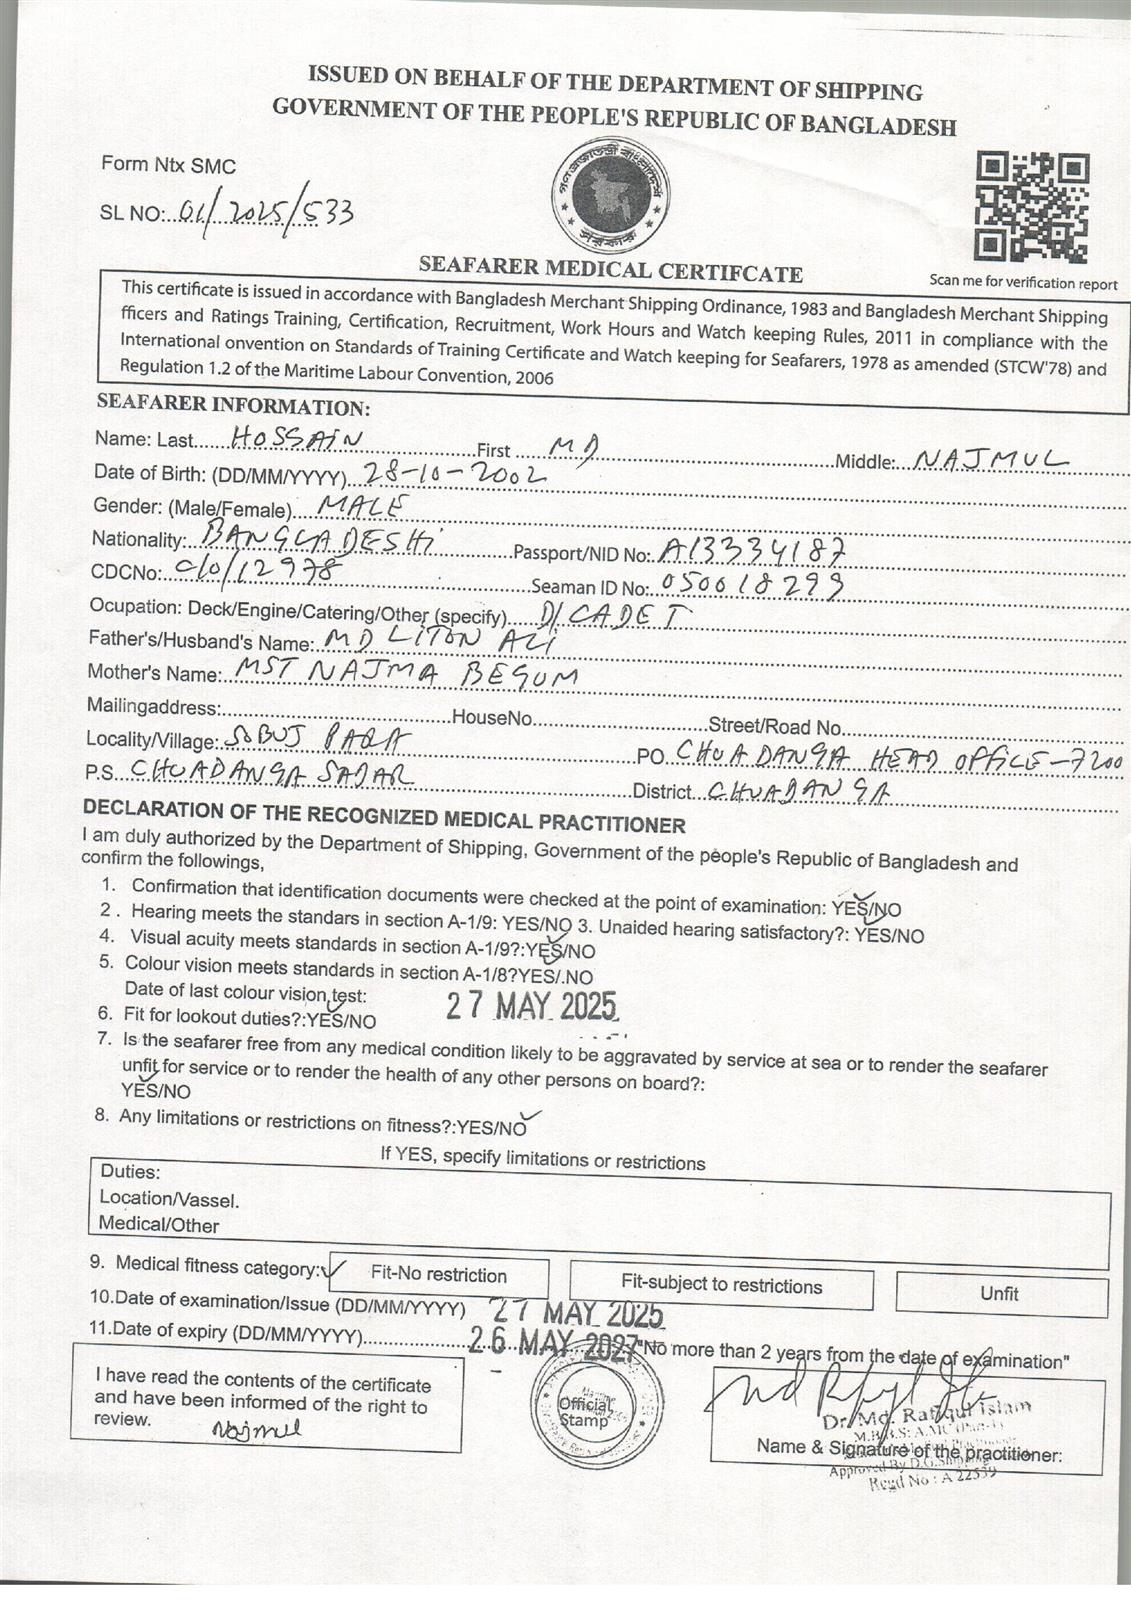 ISSUED ON BEHALF OF THE DEPARTMENT OF SHIPPING
GOVERNMENT OF THE PEOPLE'S REPUBLIC OF BANGLADESH
Form Ntx SMC
SL NO: 01/2025/533
গণপ্রজাতন্ত্রী বাংলাদেশ
সরকার
SEAFARER MEDICAL CERTIFCATE
Scan me for verification report
This certificate is issued in accordance with Bangladesh Merchant Shipping Ordinance, 1983 and Bangladesh Merchant Shipping
fficers and Ratings Training, Certification, Recruitment, Work Hours and Watch keeping Rules, 2011 in compliance with the
International onvention on Standards of Training Certificate and Watch keeping for Seafarers, 1978 as amended (STCW'78) and
Regulation 1.2 of the Maritime Labour Convention, 2006
SEAFARER INFORMATION:
Name: Last HOSSAIN First MD Middle: NAJMUL
Date of Birth: (DD/MM/YYYY) 28-10-2002
Gender: (Male/Female) MALE
Nationality: BANGLADESHI Passport/NID No: A13334187
CDCNo: C/O/12978 Seaman ID No: 050018299
Ocupation: Deck/Engine/Catering/Other (specify) D/CADET
Father's/Husband's Name: MD LITON ALI
Mother's Name: MST NAJMA BEGUM
Mailingaddress: HouseNo Street/Road No
Locality/Village: SOBUJ PARA PO CHUADANGA HEAD OFFICE-7200
P.S CHUADANGA SADAR District CHUADANGA
DECLARATION OF THE RECOGNIZED MEDICAL PRACTITIONER
I am duly authorized by the Department of Shipping, Government of the people's Republic of Bangladesh and
confirm the followings,
1. Confirmation that identification documents were checked at the point of examination: YES/NO
2 . Hearing meets the standars in section A-1/9: YES/NO 3. Unaided hearing satisfactory?: YES/NO
4. Visual acuity meets standards in section A-1/9?:YES/NO
5. Colour vision meets standards in section A-1/8?YES/.NO
Date of last colour vision test: 27 MAY 2025
6. Fit for lookout duties?:YES/NO
7. Is the seafarer free from any medical condition likely to be aggravated by service at sea or to render the seafarer
unfit for service or to render the health of any other persons on board?:
YES/NO
8. Any limitations or restrictions on fitness?:YES/NO
If YES, specify limitations or restrictions
Duties:
Location/Vassel.
Medical/Other
9. Medical fitness category: Fit-No restriction Fit-subject to restrictions Unfit
10.Date of examination/Issue (DD/MM/YYYY) 27 MAY 2025
11.Date of expiry (DD/MM/YYYY) 26 MAY 2027 "No more than 2 years from the date of examination"
I have read the contents of the certificate
and have been informed of the right to
review.
Najmul
Official
Stamp
Dr. Md. Rafiqul Islam
Name & Signature of the practitioner:
Approved By D.G.Shipping
Regd No : A 22539